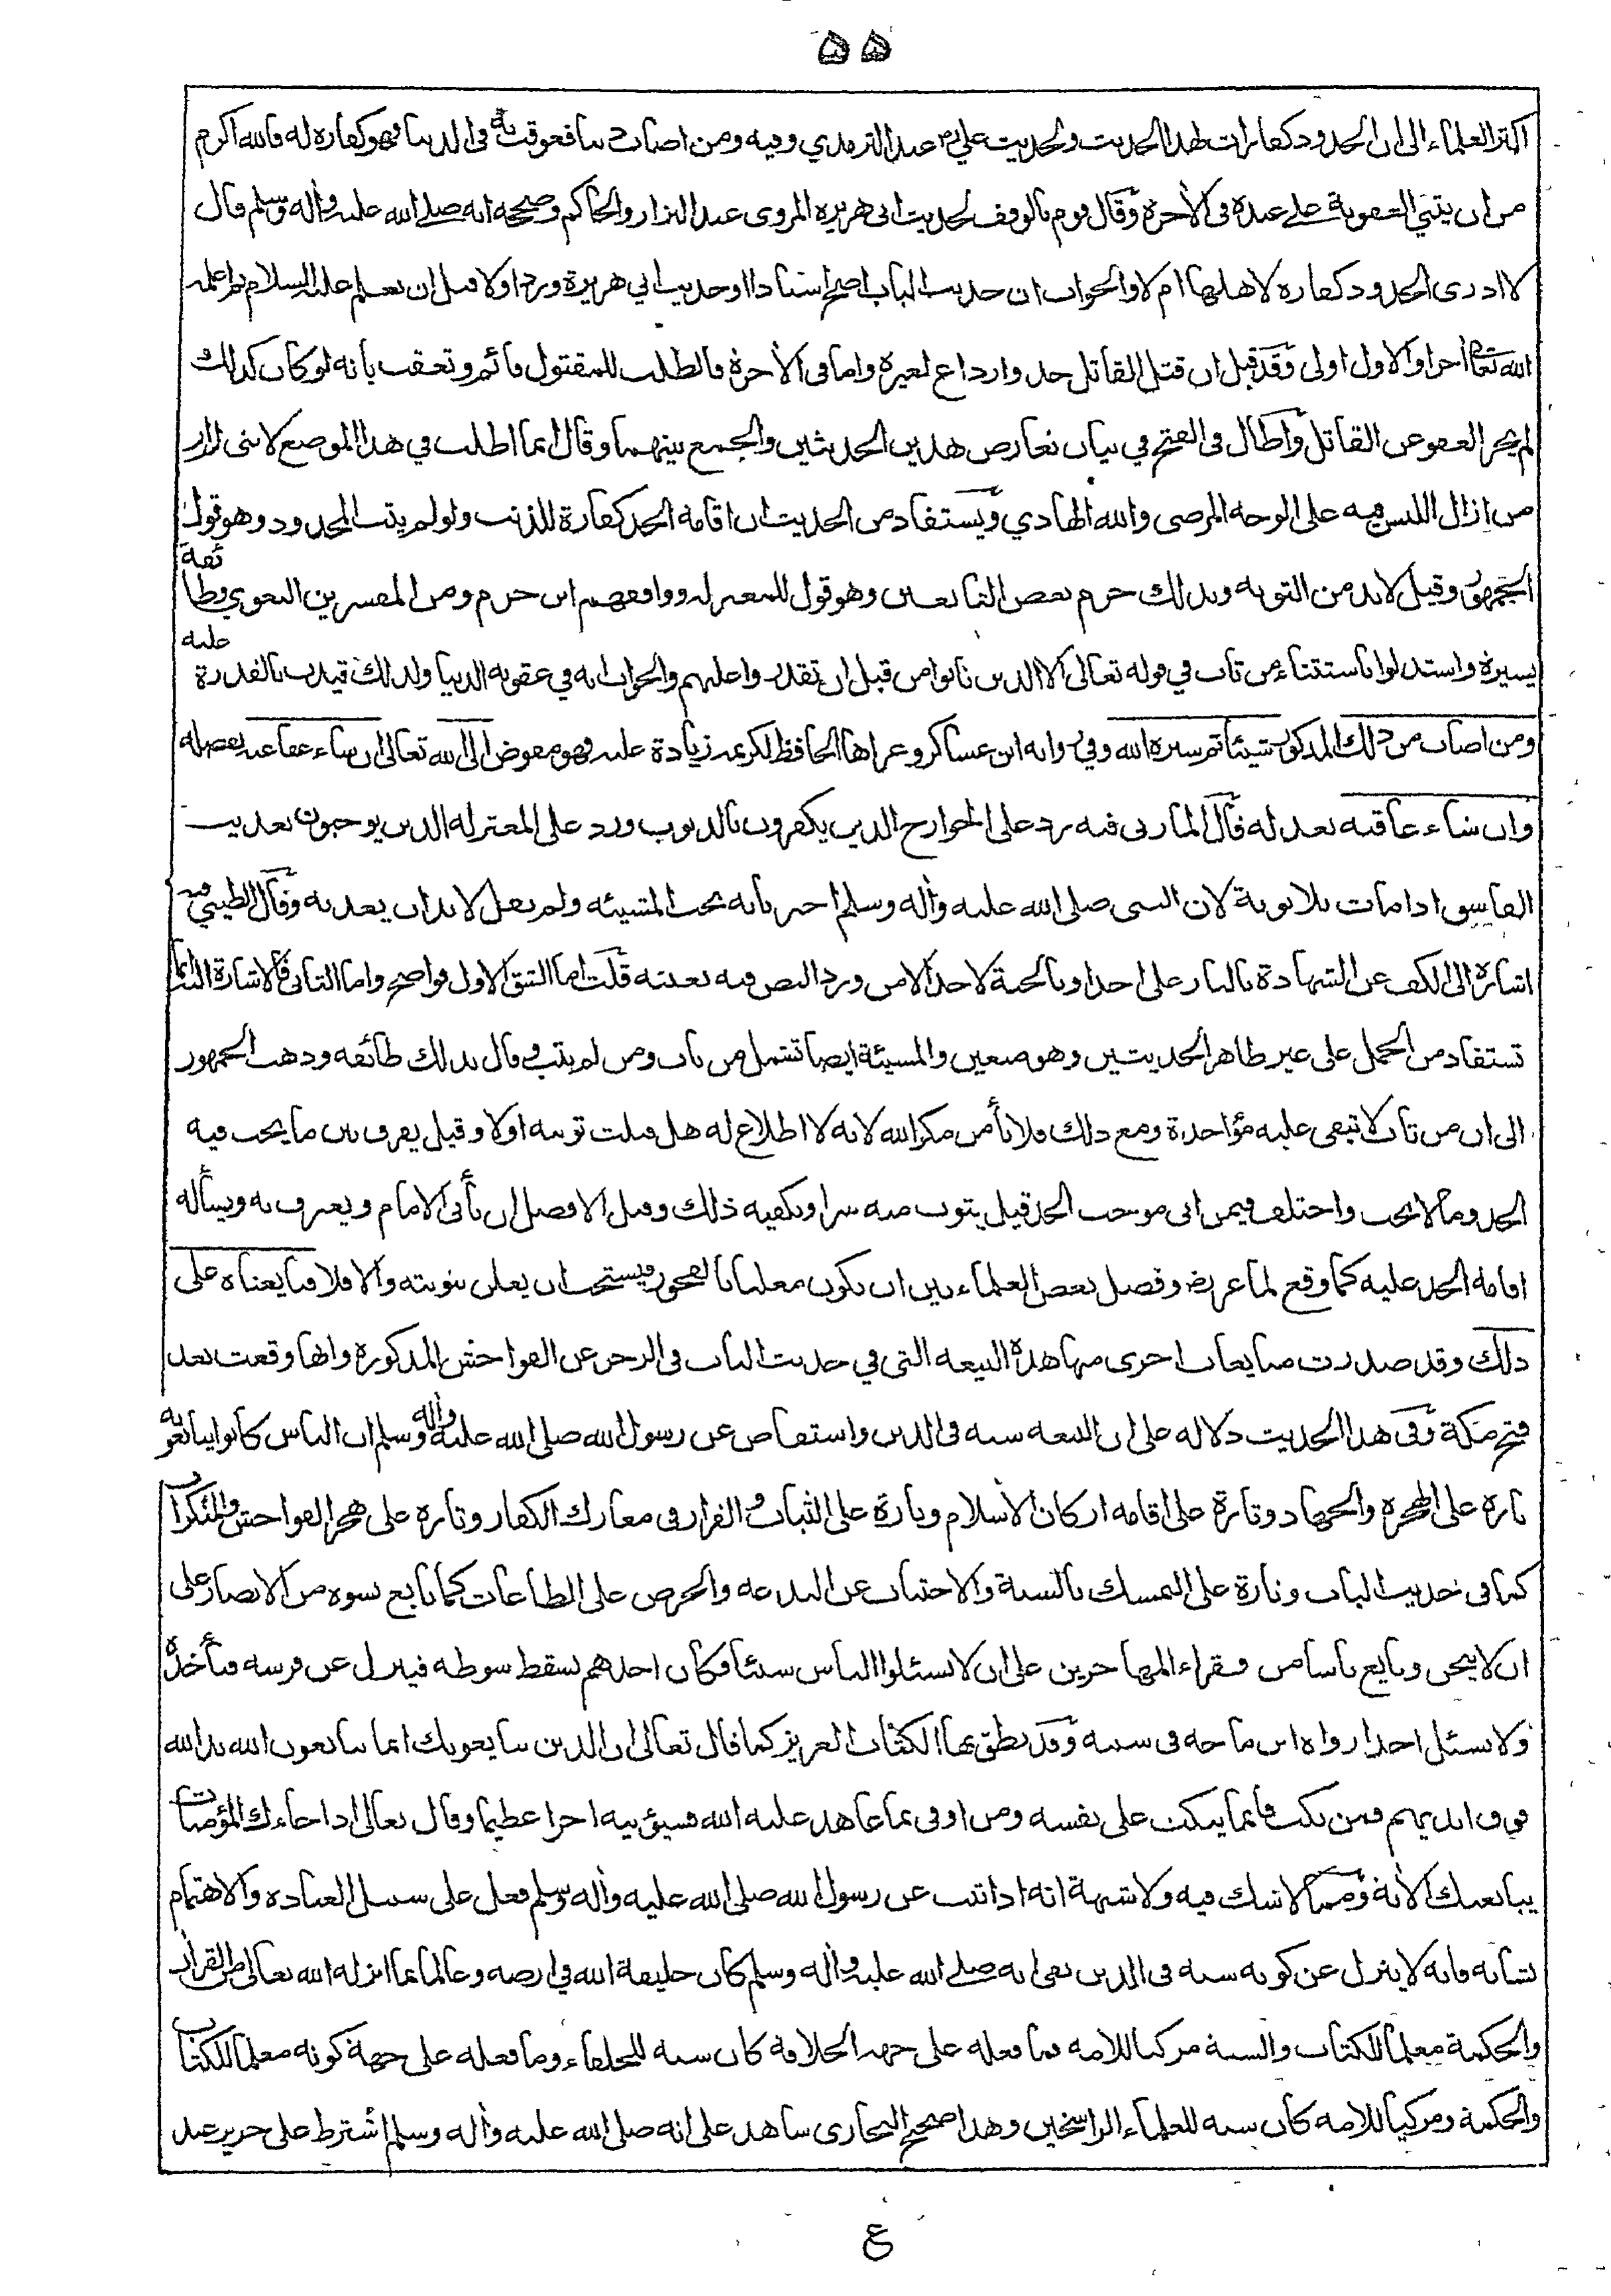 ٥٥
اكثر العلماء الى ان الحدود كفارات لهذا الحديث ولحديث علي رض عند الترمذي وفيه ومن اصاب ذنبا فعوقب به في الدنيا فهو كفارة له فالله اكرم
من ان يثني العقوبة على عبده في الآخرة وقال قوم بالوقف لحديث ابي هريرة المروي عند البزار والحاكم وصححه انه صلى الله عليه وآله وسلم قال
لا ادري الحدود كفارة لاهلها ام لا والجواب ان حديث الباب اصح اسنادا او حديث ابي هريرة ورد اولا قبل ان يعلم عليه السلام ثم اعلمه
الله تعالى آخرا والاول اولى وقد قيل ان قتل القاتل حد وارداع لغيره واما في الآخرة فالطلب للمقتول قائم وتعقب بانه لو كان كذلك
لم يجز العفو عن القاتل واطال في الفتح في بيان تعارض هذين الحديثين والجمع بينهما وقال انما اطلت في هذا الموضع لانني لم ار
من ازال اللبس فيه على الوجه المرضي والله الهادي ويستفاد من الحديث ان اقامة الحد كفارة للذنب ولو لم يتب المحدود وهو قول
الجمهور وقيل لا بد من التوبة وبذلك جزم بعض التابعين وهو قول للمعتزلة ووافقهم ابن حزم ومن المفسرين البغوي وطائفة
يسيرة واستدلوا باستثناء من تاب في قوله تعالى الا الذين تابوا من قبل ان تقدروا عليهم والجواب انه في عقوبة الدنيا ولذلك قيدت بالقدرة عليه
ومن اصاب من ذلك المذكور شيئا ثم ستره الله وفي رواية ابن عساكر وعزاها الحافظ لكريمة زيادة عليه فهو مفوض الى الله تعالى ان شاء عفا عنه بفضله
وان شاء عاقبه بعدله قال المازري فيه رد على الخوارج الذين يكفرون بالذنوب ورد على المعتزلة الذين يوجبون تعذيب
الفاسق اذا مات بلا توبة لان النبي صلى الله عليه وآله وسلم اخبر بانه تحت المشيئة ولم يقل لا بد ان يعذبه وقال الطيبي فيه
اشارة الى الكف عن الشهادة بالنار على احد او بالجنة لاحد الا من ورد النص فيه بعينه قلت اما الشق الاول فواضح واما الثاني فالاشارة اليه انما
تستفاد من الحمل على غير ظاهر الحديثين وهو متعين والمشيئة ايضا تشمل من تاب ومن لم يتب وقال بذلك طائفة وذهب الجمهور
الى ان من تاب لا تبقى عليه مؤاخذة ومع ذلك فلا يأمن مكر الله لانه لا اطلاع له هل قبلت توبته اولا وقيل يفرق بين ما يجب فيه
الحد وما لا يجب واختلف فيمن اتى موجب الحد فقيل يتوب منه سرا ويكفيه ذلك وقيل الافضل ان يأتي الامام ويعترف به ويسأله
اقامة الحد عليه كما وقع لماعز وفصل بعض العلماء بين ان يكون معلنا بالفجور فيستحب ان يعلن بتوبته والا فلا فبايعناه على
ذلك وقد صدرت مبايعات اخرى منها هذه البيعة التي في حديث الباب في الزجر عن الفواحش المذكورة وانها وقعت بعد
فتح مكة وفي هذا الحديث دلالة على ان البيعة سنة في الدين واستفاض عن رسول الله صلى الله عليه وآله وسلم ان الناس كانوا يبايعونه
تارة على الهجرة والجهاد وتارة على اقامة اركان الاسلام وتارة على الثبات والقرار في معارك الكفار وتارة على هجر الفواحش والمنكرات
كما في حديث الباب وتارة على التمسك بالسنة والاجتناب عن البدعة والحرص على الطاعات كما بايع نسوة من الانصار على
ان لا ينحن وبايع ناسا من فقراء المهاجرين على ان لا يسئلوا الناس شيئا فكان احدهم يسقط سوطه فينزل عن فرسه فيأخذه
ولا يسئل احدا رواه ابن ماجه في سننه وقد نطق بها الكتاب العزيز كما قال تعالى ان الذين يبايعونك انما يبايعون الله يد الله
فوق ايديهم فمن نكث فانما ينكث على نفسه ومن اوفى بما عاهد عليه الله فسيؤتيه اجرا عظيما وقال تعالى اذا جاءك المؤمنات
يبايعنك الآية ومما لا شك فيه ولا شبهة انه اذا ثبت عن رسول الله صلى الله عليه وآله وسلم فعل على سبيل العبادة والاهتمام
بشانه فانه لا ينزل عن كونه سنة في الدين بقي انه صلى الله عليه وآله وسلم كان خليفة الله في ارضه وعالما بما انزله الله تعالى من القرآن
والحكمة معلما للكتاب والسنة مزكيا للامة فما فعله على جهة الخلافة كان سنة للخلفاء وما فعله على جهة كونه معلما للكتاب
والحكمة ومزكيا للامة كان سنة للعلماء الراسخين وهذا صحيح البخاري شاهد على انه صلى الله عليه وآله وسلم اشترط على جرير عند
ع